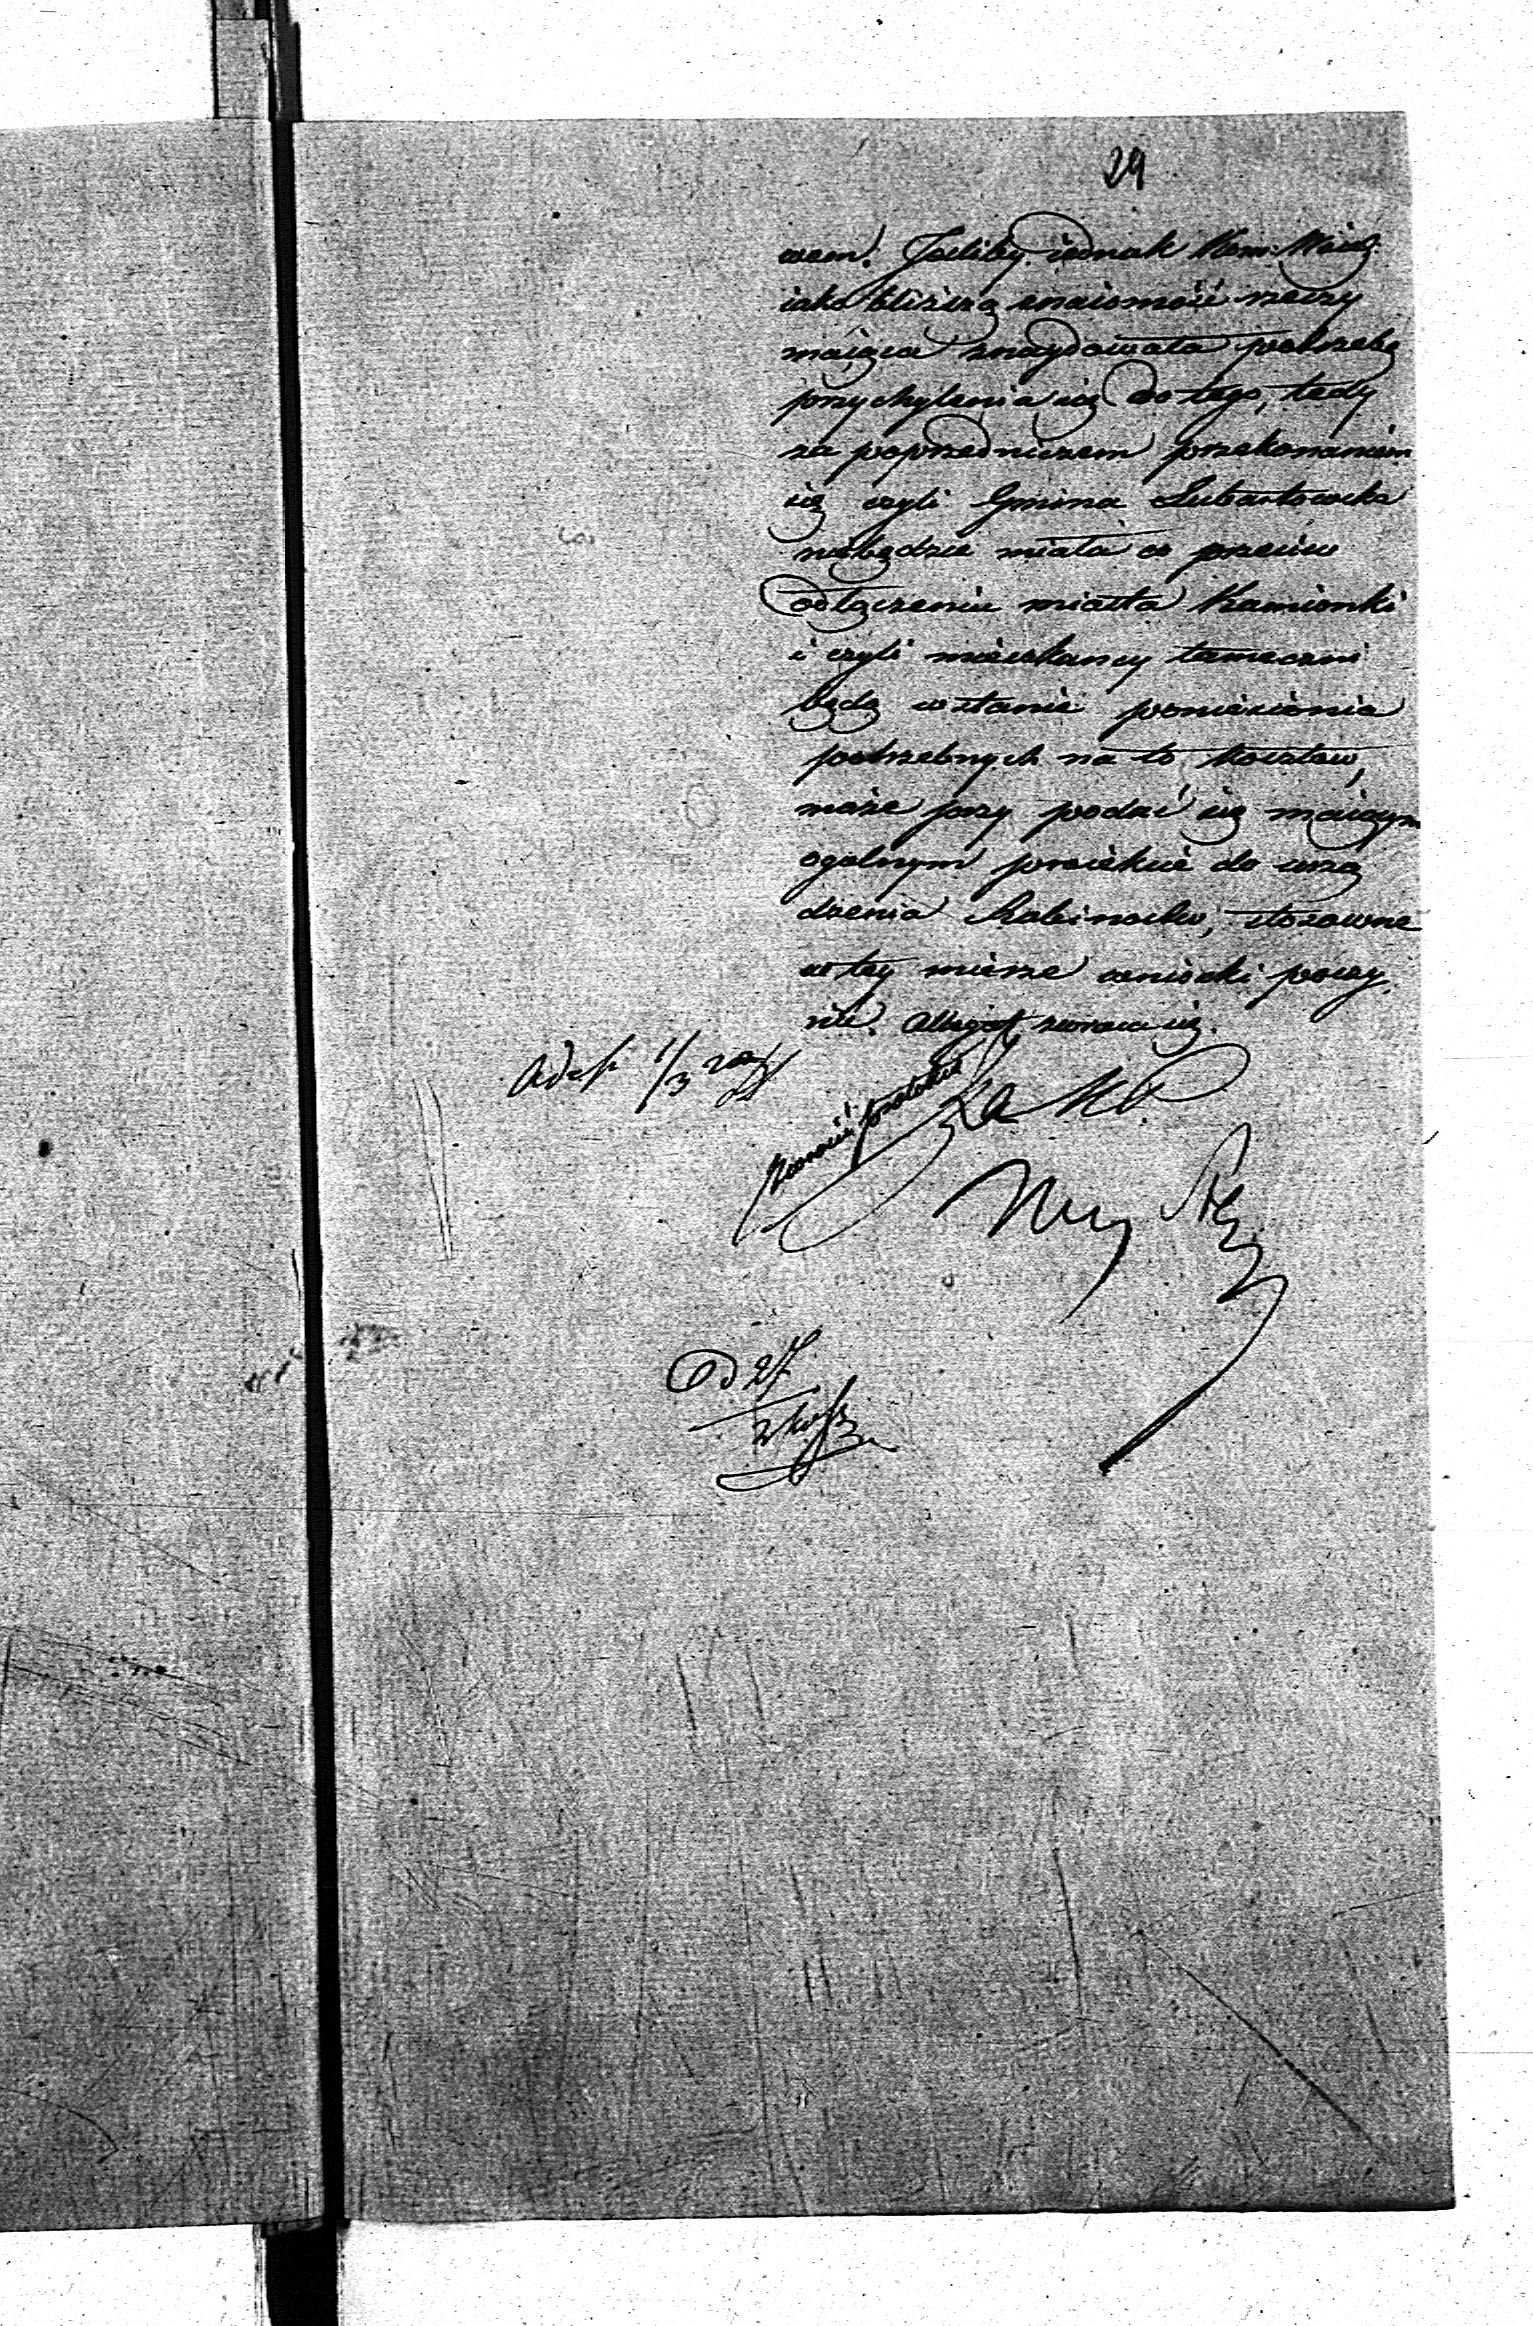 29
wem. Jeśliby iednak Kom: Woiew:
iako bliższą znaiomość rzeczy
maiąca znaydowała potrzebę
przychylenia się do tego, tedy
za poprzedniczem przekonaniem
się czyli Gmina Lubartowska
niebędzie miała co przeciw
odłączeniu miasta Kamionki
i czyli mieszkancy tameczni
będą wstanie poniesienia
potrzebnych na to kosztow,
może przy podać się maiącym
ogolnym proiekcie do urzą
dzenia Rabinackw, stosowne
w tey mierze wnioski poczy,
nić. Allegat zwraca się.
1/3
Za
Od 27